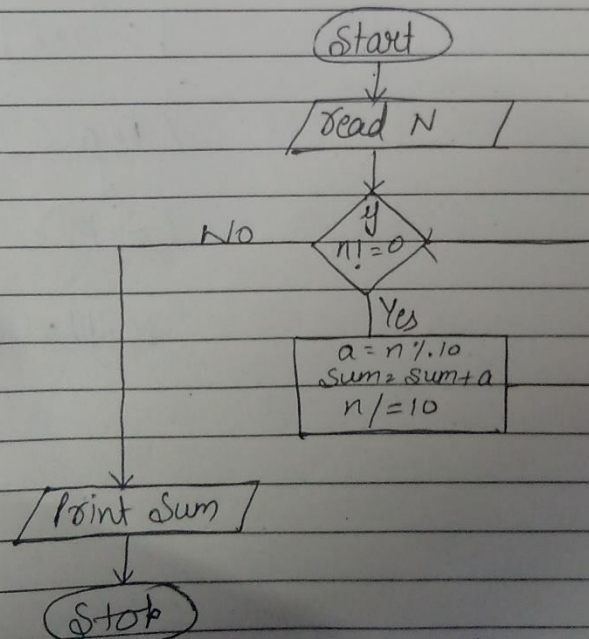 Start
read N
if
n!=0
No
Yes
a = n%10
Sum= Sum+a
n/=10
Print Sum
Stop